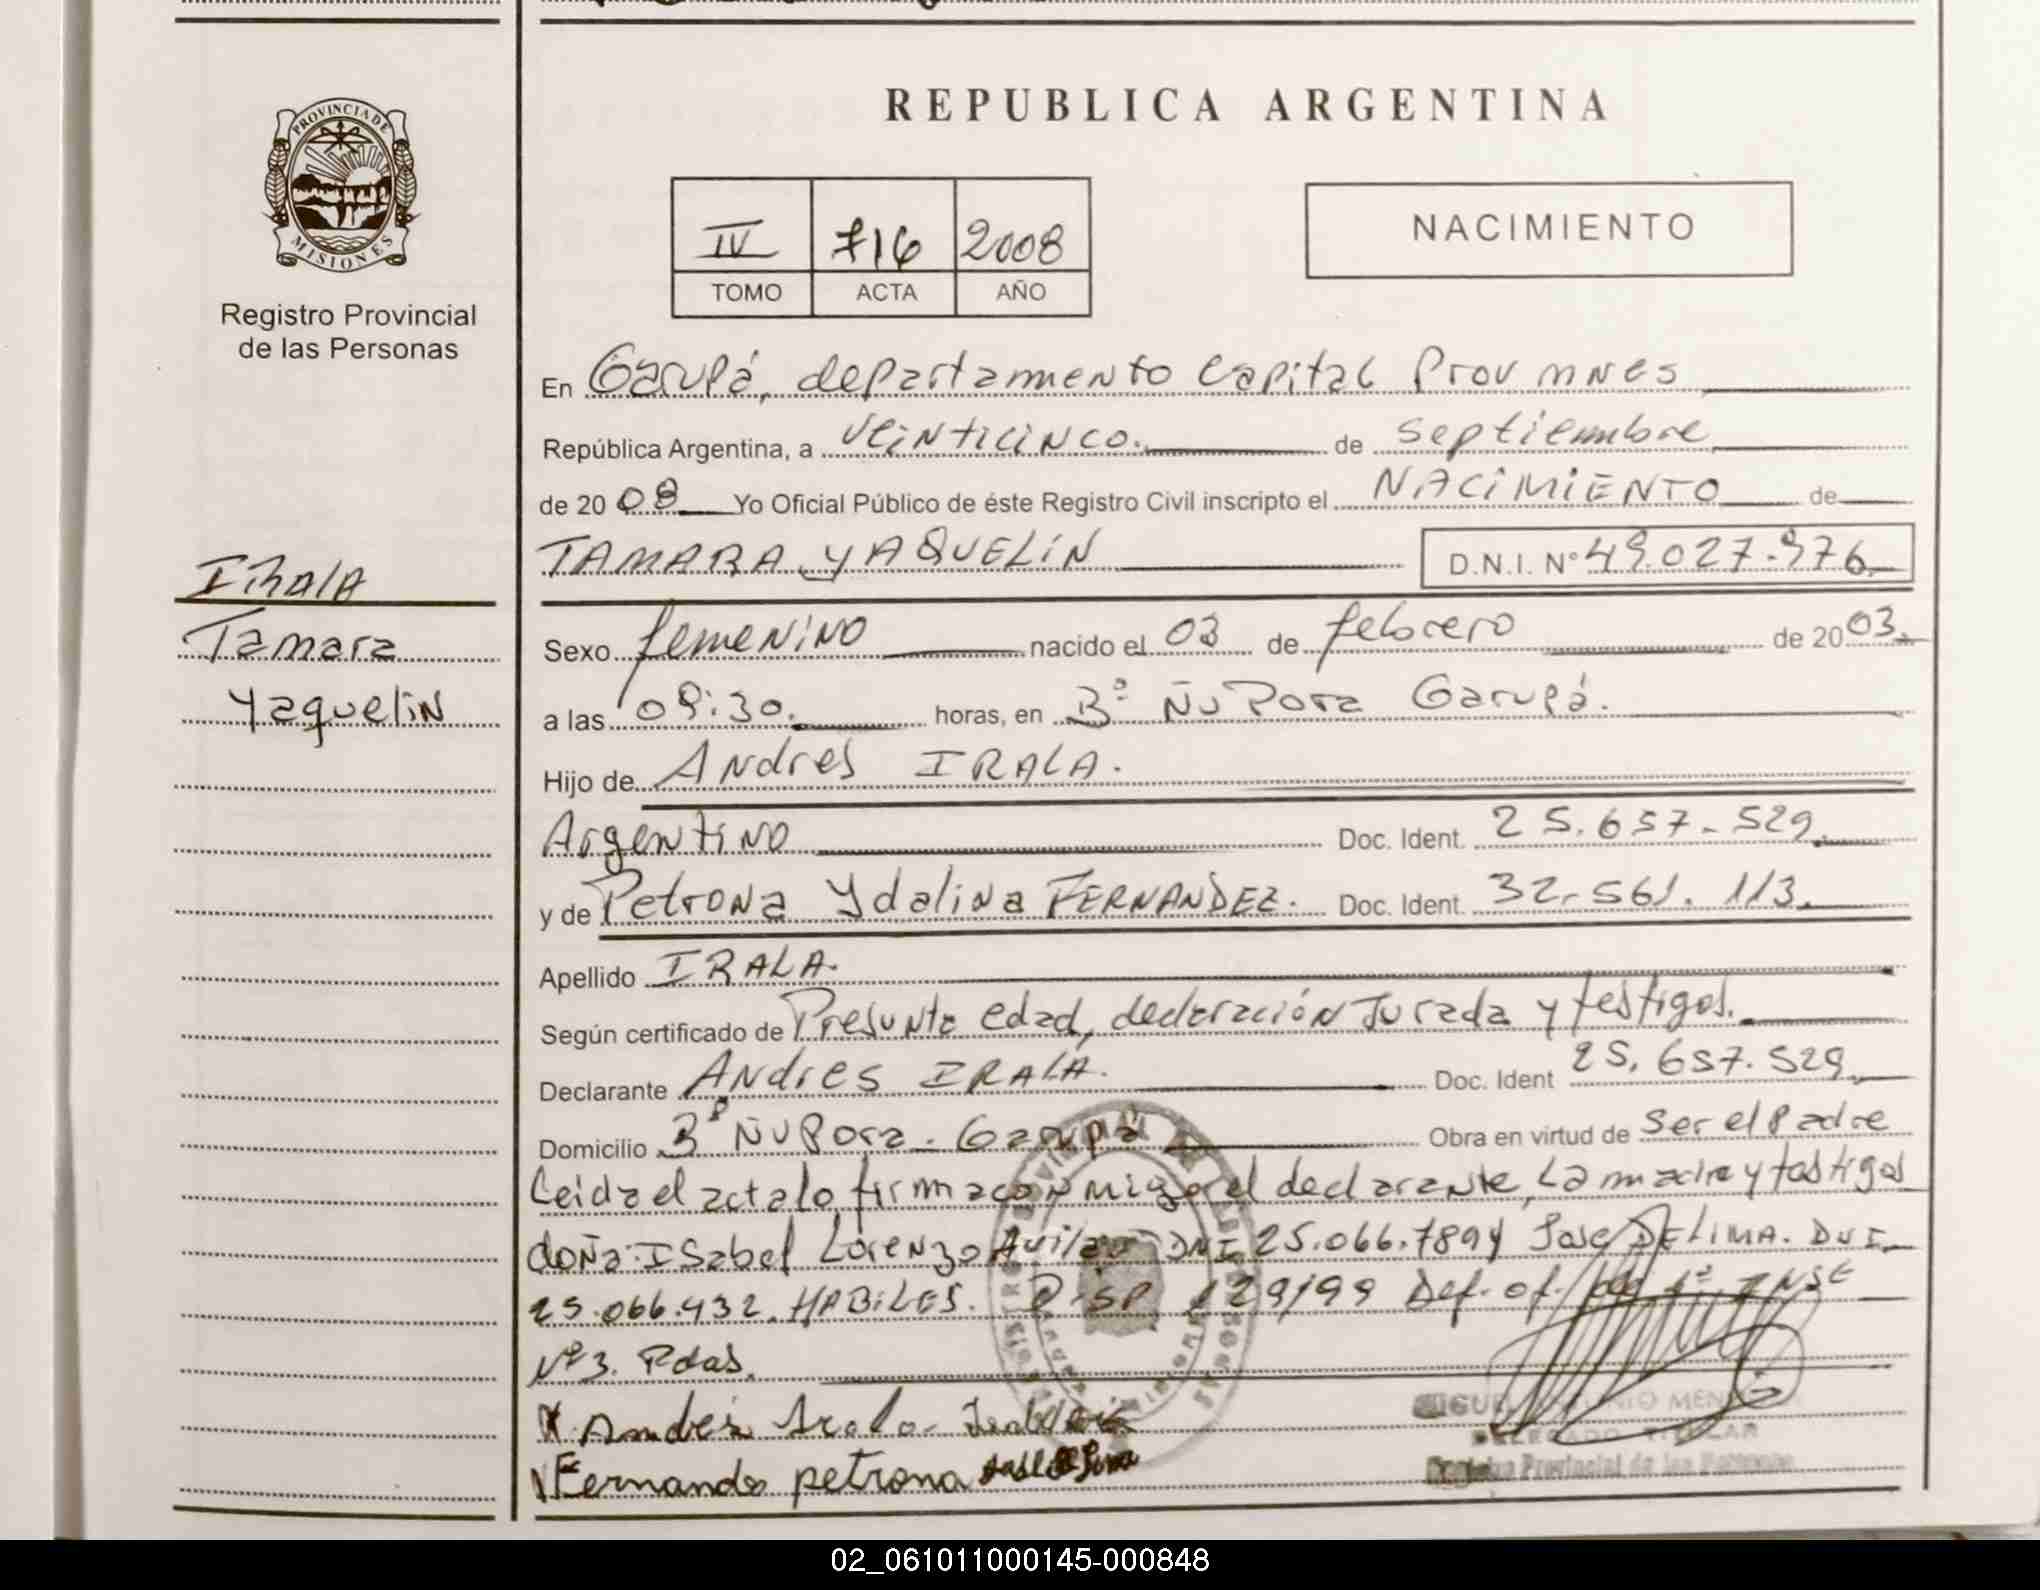 REPUBLICA ARGENTINA
PROVINCIA DE
MISIONES
Registro Provincial
de las Personas
IV 716 2008
TOMO ACTA AÑO
NACIMIENTO
En Garupá, departamento Capital Prov mnes
República Argentina, a veinticinco. de septiembre
de 2008 Yo Oficial Público de éste Registro Civil inscripto el NACIMIENTO de
TAMARA YAQUELIN D.N.I. Nº 49.027.976
IRALA
Tamara
Yaquelin
Sexo femenino nacido el 03 de febrero de 2003.
a las 09:30. horas, en Bº Ñu Pora Garupá.
Hijo de Andres IRALA.
Argentino Doc. Ident. 25.657.529.
y de Petrona Ydalina FERNANDEZ. Doc. Ident. 32.561.113.
Apellido IRALA.
Según certificado de Presunta edad, declaración Jurada y testigos.
Declarante Andres IRALA. Doc. Ident 25.657.529
Domicilio Bº Ñu Pora - Garupá Obra en virtud de Ser el Padre
Leida el acta lo firma conmigo el declarante, la madre y testigos
doña: Isabel Lorenzo DNI 25.066.789 y Jose DELIMA. DNI.
25.066.432 HABILES. Disp 129/99 Def. of. de 1ª INSt
Nº 3. Pdas.
Andrés Irala
Fernando petrona
DELEGADO TITULAR
Registro Provincial de las Personas
02_061011000145-000848